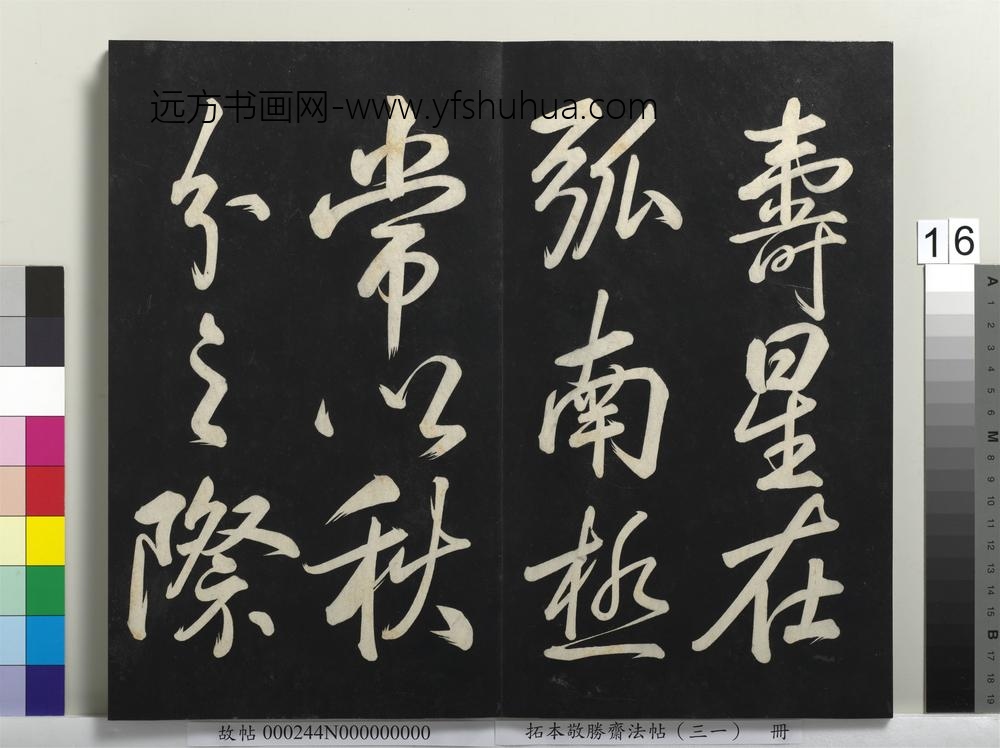 远方书画网-www.yfshuhua.com
壽星在
弧南極
常以秋
分之際
16
A
1
2
3
4
5
6
M
8
9
10
11
12
13
14
15
B
17
18
19
故帖 000244N000000000
拓本敬勝齋法帖（三一） 冊